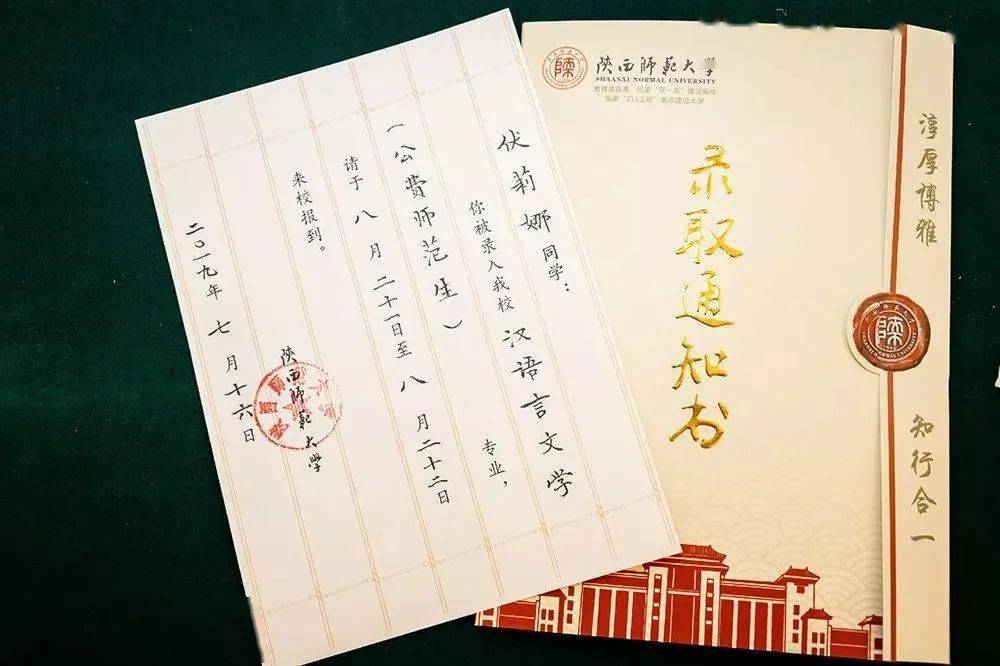 伏莉娜同学:
你被录入我校汉语言文学专业,
(公费师范生)
请于八月二十一日至八月二十二日
来校报到。
陕西师范大学
二〇一九年七月十六日
陕西师范大学
SHAANXI NORMAL UNIVERSITY
教育部直属、国家“双一流”建设高校
国家“211工程”重点建设大学
录取通知书
淳厚博雅
知行合一
陕
SHAANXI NORMAL UNIVERSITY